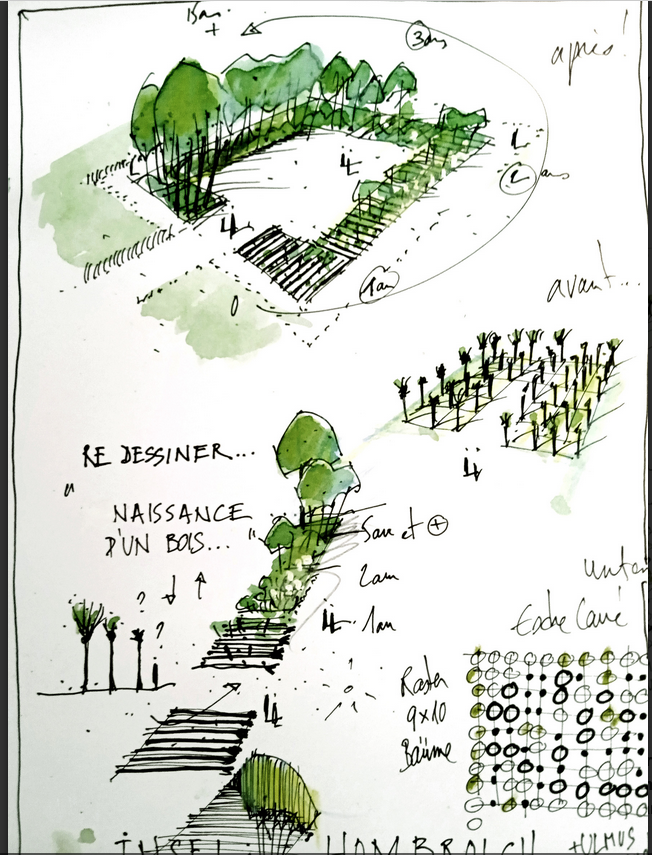 15ans
+
3ans
après!
2 ans
1an
0
avant...
RE DESSINER...
"NAISSANCE
D'UN BOIS..."
5an et +
2an
1an
? ?
Raster
9x10
Bäume
INSEL HOMBROICH + ULMUS